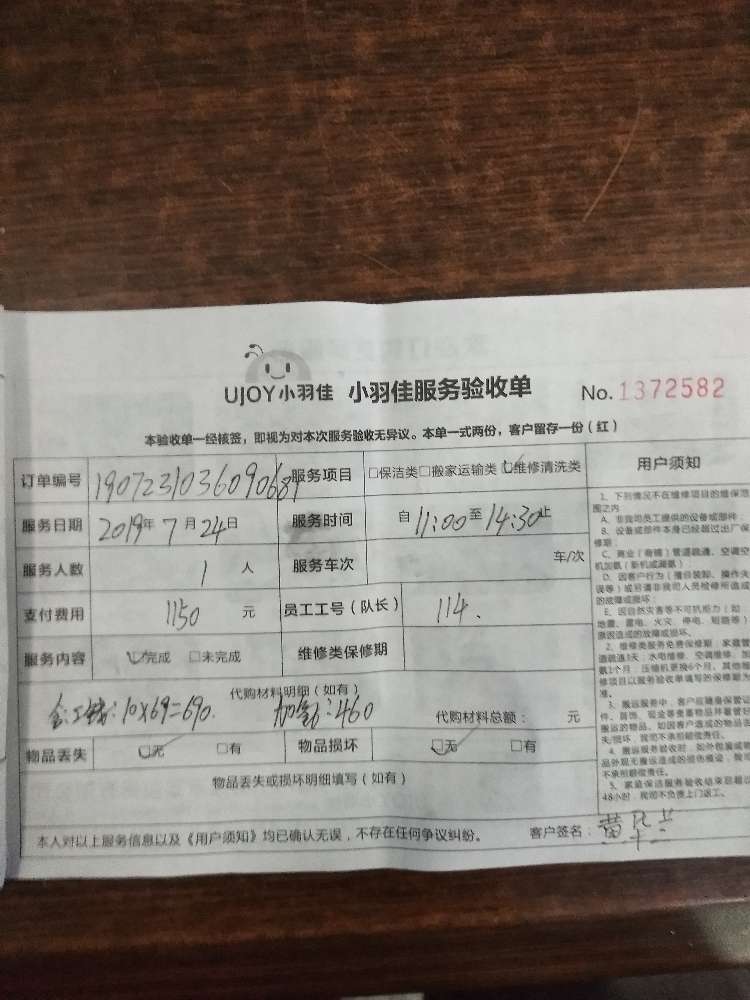 UJOY小羽佳 小羽佳服务验收单 No. 1372582
本验收单一经核签，即视为对本次服务验收无异议。本单一式两份，客户留存一份（红）
订单编号 190723103609068 服务项目 □保洁类□搬家运输类☑维修清洗类 用户须知
服务日期 2019年 7 月 24日 服务时间 自 11:00 至 14:30止
服务人数 1 人 服务车次 车/次
支付费用 1150 元 员工工号（队长） 114.
服务内容 ☑完成 □未完成 维修类保修期
代购材料明细（如有）
10×69=690. 加氟:460 代购材料总额： 元
物品丢失 ☑无 □有 物品损坏 ☑无 □有
物品丢失或损坏明细填写（如有）
本人对以上服务信息以及《用户须知》均已确认无误，不存在任何争议纠纷。 客户签名：黄华兰
1、下列情况不在维修项目的维保范
围之内
A、非我司员工提供的设备或部件；
B、设备或部件本身已经超过出厂保
修期；
C、商业（商铺）管道疏通、空调空
机加氨（新机或漏氨）
D、因客户行为（擅自装卸、操作失
误等）或另请非我司人员检修所造成
的故障或损坏；
E、因自然灾害等不可抗拒力（如
地震、雷电、火灾、停电、短路等）
原因造成的故障或损坏。
2、维修类服务免费保修期：家庭管
道疏通3天，水电维修、空调维修、加
氨1个月，压缩机更换6个月。其他维
修项目以服务验收单填写的保修期为
准。
3、搬运服务中，客户应随身保管证
件、首饰、现金等贵重物品并看管好
搬运的物品，如因客户造成的物品丢
失/损坏，我司不承担赔偿责任。
4、搬运服务验收时，如外包装或物
品外观无搬运造成的损伤痕迹，我司
不承担赔偿责任。
5、家庭保洁服务验收结束后超过
48小时，我司不负责上门返工。